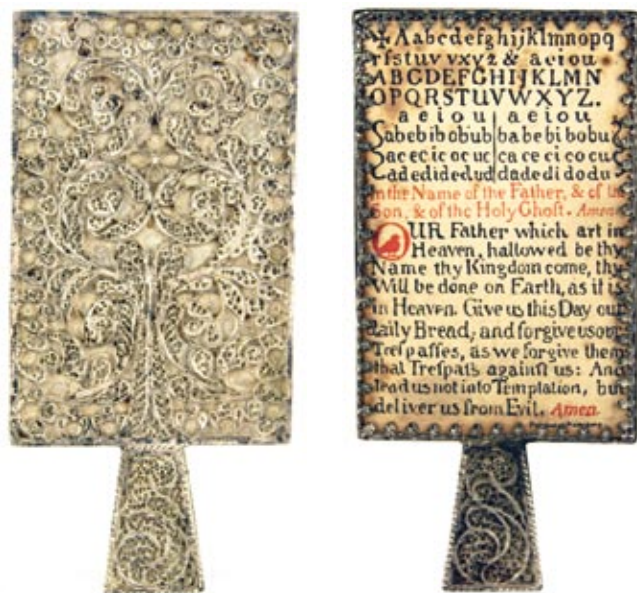 ✠ Aabcdefghijklmnopq
rſstuvvxyz & aeiou
ABCDEFGHIJKLMN
OPQRSTUVWXYZ.
aeiou aeiou
ab eb ib ob ub ba be bi bo bu
ac ec ic oc uc ca ce ci co cu
ad ed id ed ud da de di do du
In the Name of the Father, & of the
Son, & of the Holy Ghoſt. Amen
OUR Father which art in
Heaven, hallowed be thy
Name thy Kingdom come, thy
Will be done on Earth, as it is
in Heaven. Give us this Day our
daily Bread, and forgive us our
Treſpaſſes, as we forgive them
that Treſpaſs againſt us: And
lead us not into Temptation, but
deliver us from Evil. Amen